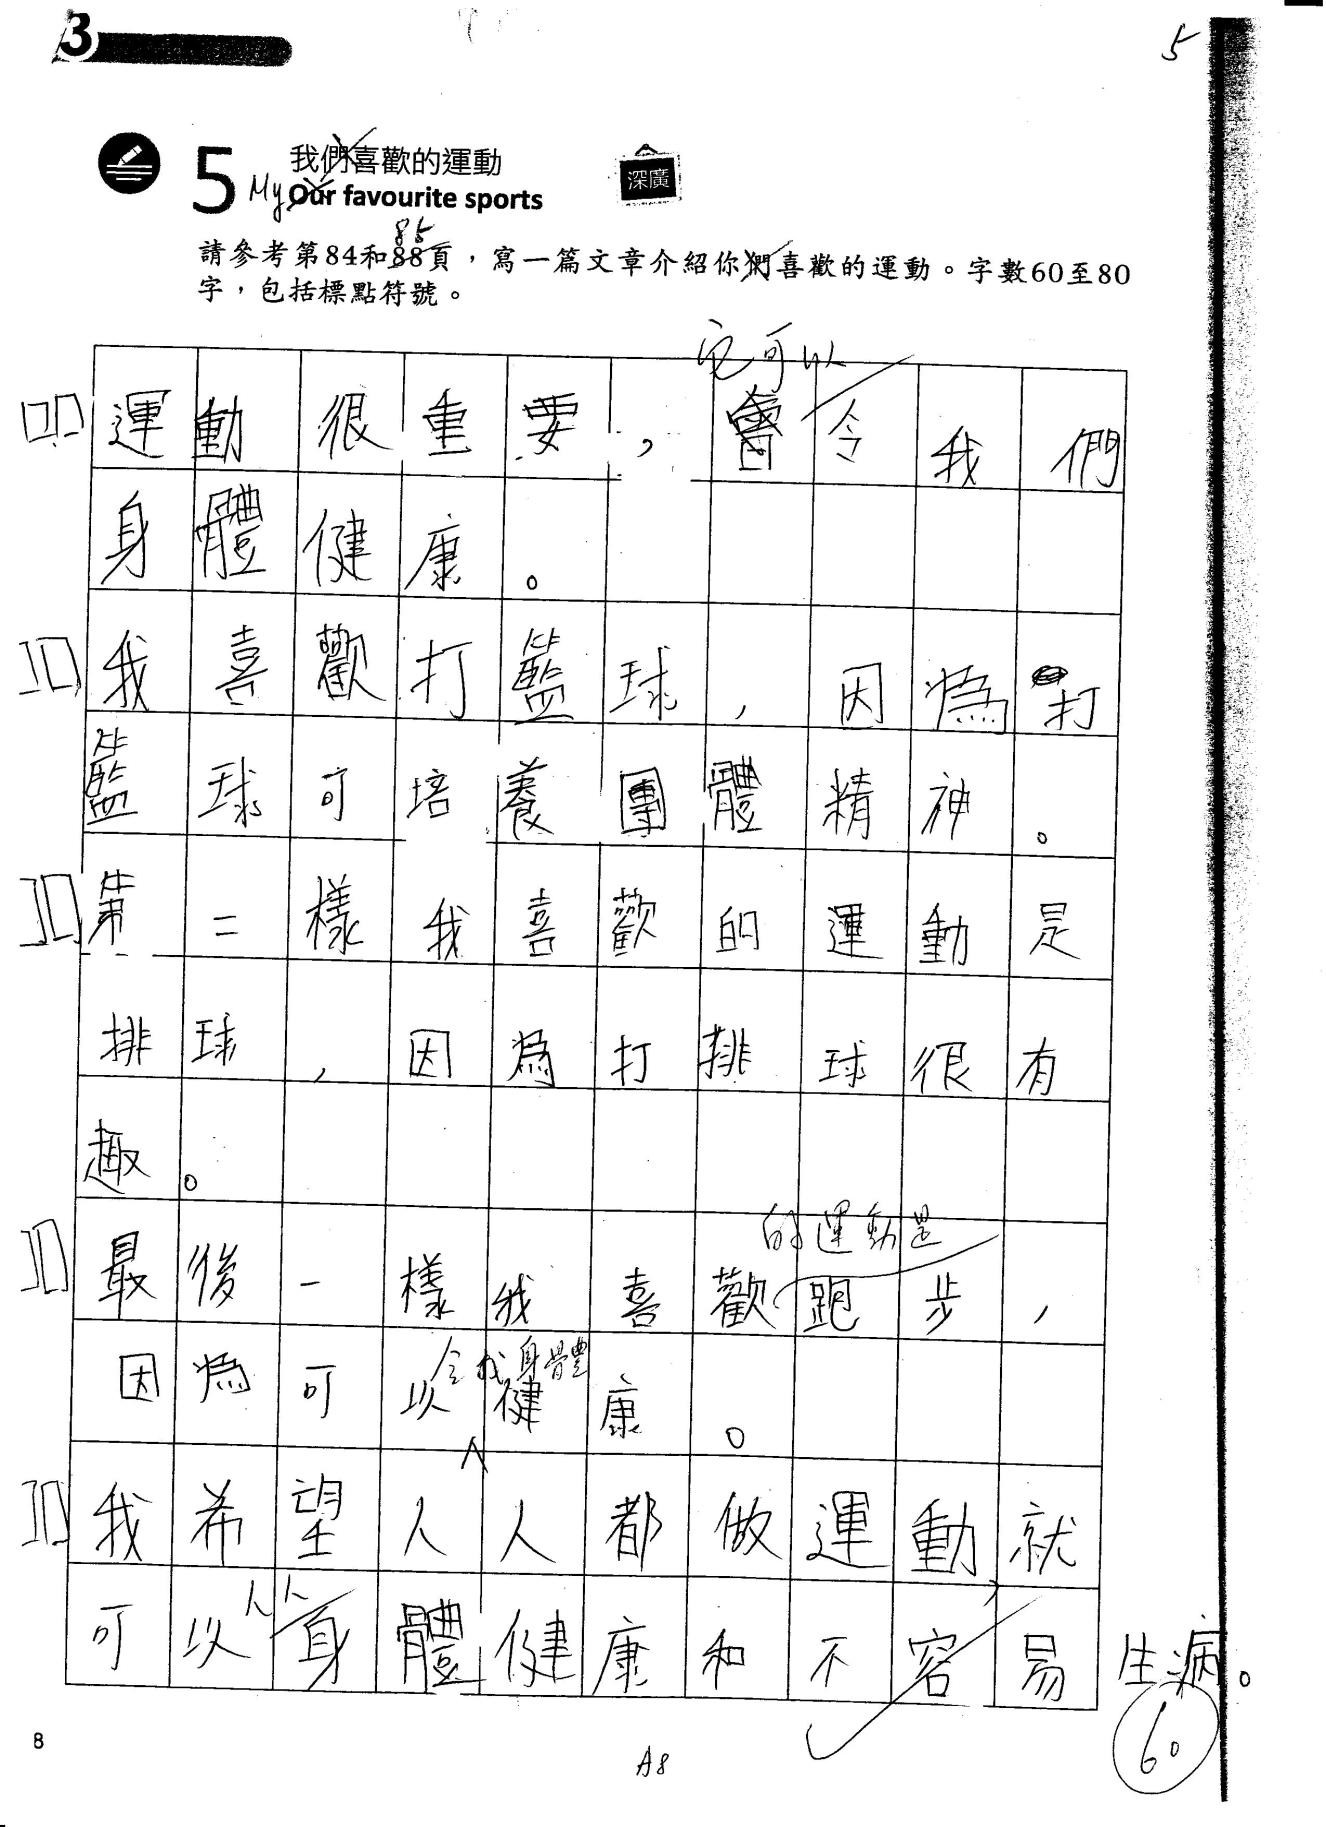 3
5
5 我們喜歡的運動
My Our favourite sports
深廣
85
請參考第84和88頁，寫一篇文章介紹你們喜歡的運動。字數60至80
字，包括標點符號。
它可以
運動很重要，會令我們
身體健康。
我喜歡打籃球，因為打
籃球可培養團體精神。
第二樣我喜歡的運動是
排球，因為打排球很有
趣。
的運動是
最後一樣我喜歡跑步，
令我身體
因為可以健康。
我希望人人都做運動就
人人
可以身體健康和不容易生病。
60
8
A8